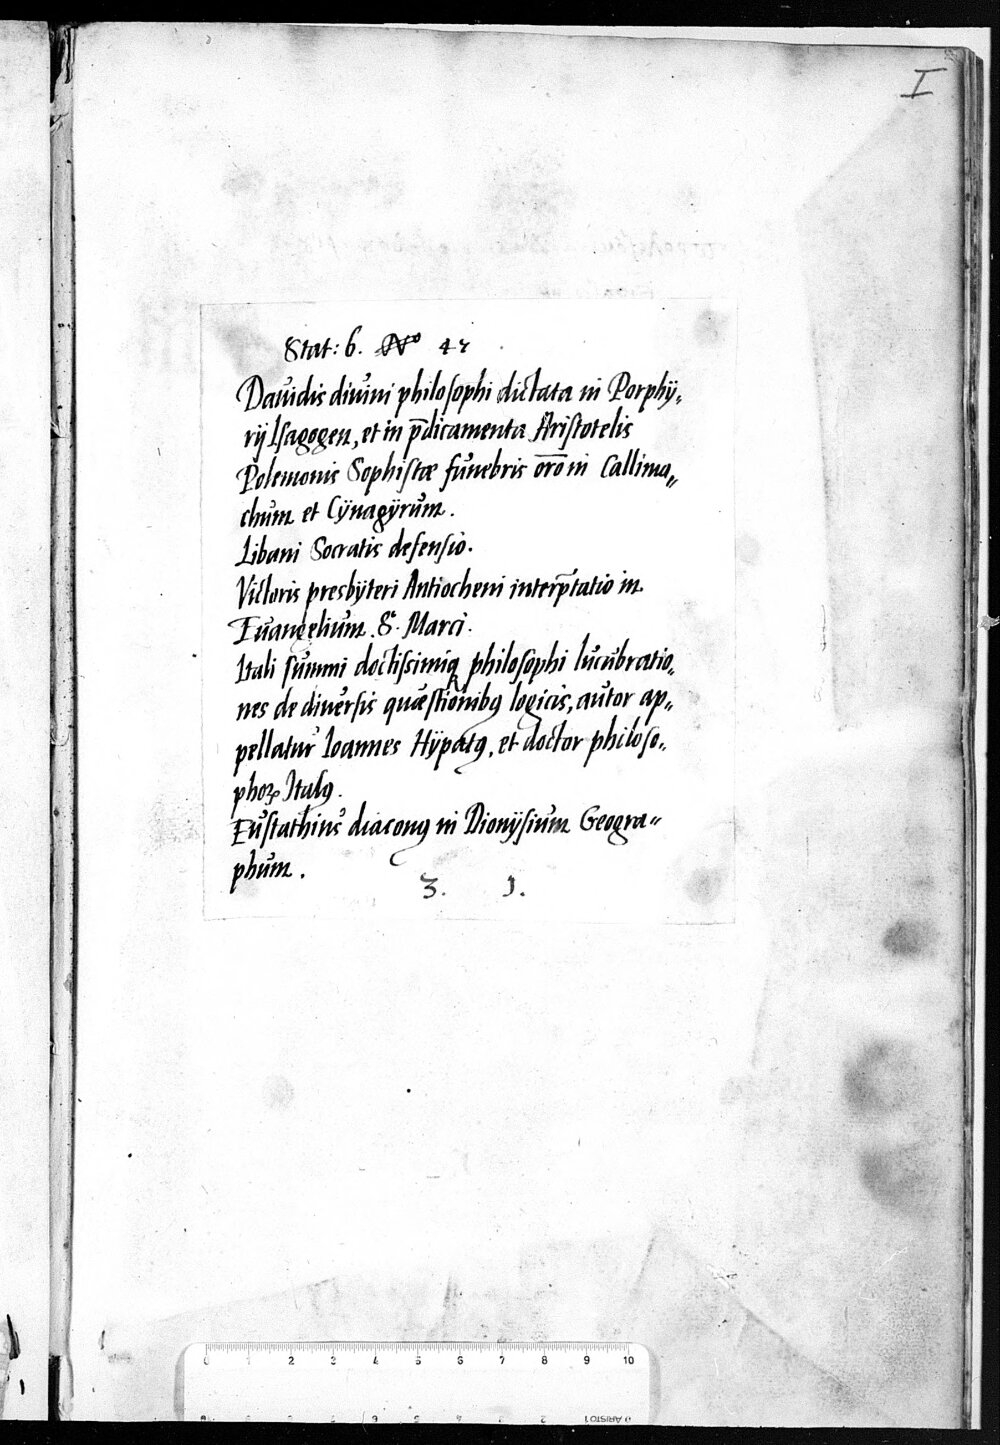 I
Stat: 6. No 42
Dauidis diuini philosophi dictata in Porphÿ„
rij Isagogen, et in p̄dicamenta Aristotelis
Polemonis Sophistæ funebris orō in Callima„
chum et Cÿnagÿrum.
Libani Socratis defensio.
Victoris presbÿteri Antiocheni interp̄tatio in
Euangelium S. Marci.
Itali summi doctissimiq philosophi lucubratio„
nes de diuersis quæstionibꝯ logicis, autor ap„
pellatur Ioannes Hÿpatꝯ, et doctor philoso„
phoꝝ Italꝯ.
Eustathius diaconꝯ in Dionÿsium Geogra„
phum.
3. 1.
0 1 2 3 4 5 6 7 8 9 10
ARISTO